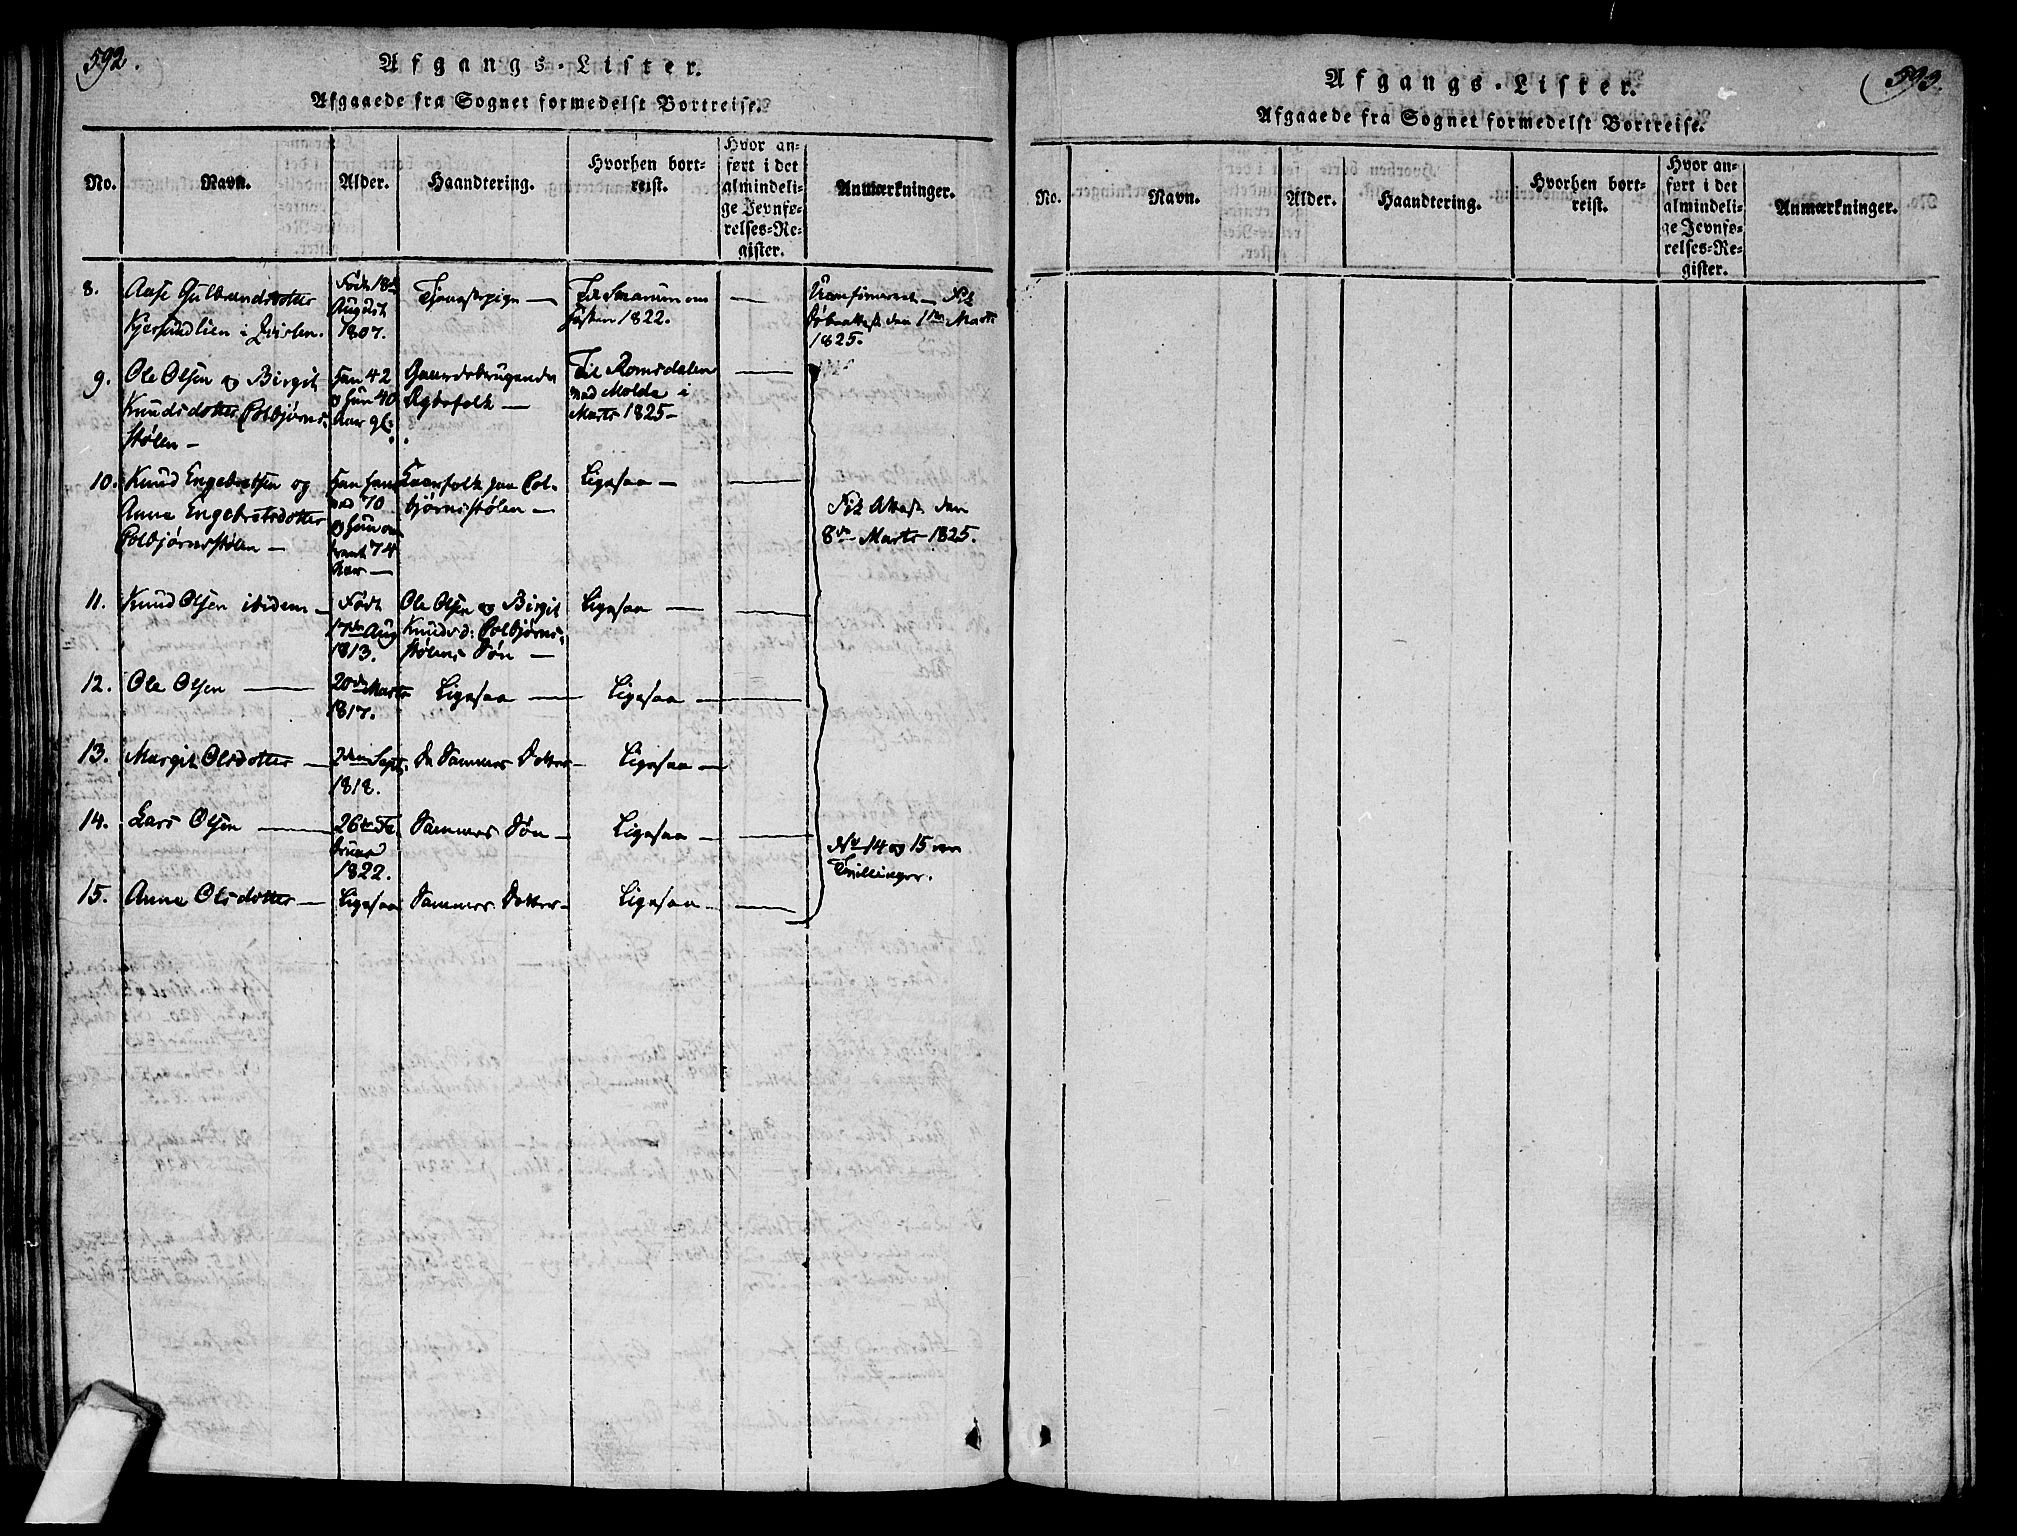 592.
Afgangs-Lister.
Afgaaede fra Sognet formedelst Bortreise.
No.
Navn.
Alder.
Haandtering.
Hvorhen bort-
reist.
Hvor an-
ført i det
almindeli-
ge Jevnfø-
relses-Re-
gister.
Anmærkninger.
8.
Aase Gulbrandsdotter
Født 18de
August
1807.
Tjenestepige —
1822.
Fik
den 1ste Marts
1825.
9.
Ole Olsen og Birgit
Knudsdotter Colbjørns-
stølen —
Han 42
og Hun 40
Aar gl:
Gaardbrugende
Egtefolk —
Til Romsdalen
ved Molde i
Marts 1825 —
10.
Knud Engebretsen og
Anne Engebretsdotter
Colbjørnsstølen —
Han
70
og Hun
74
Aar —
paa Col-
bjørnsstølen —
Ligesaa —
Fik Attest den
8de Marts 1825.
11.
Knud Olsen ibidem —
Født
17de Aug
1813.
Ole Olsen og Birgit
Knudsd: Colbjørns-
stølens Søn —
Ligesaa —
12.
Ole Olsen —
20de Marts
1817.
Ligesaa —
Ligesaa —
13.
Margit Olsdotter —
2den Septr.
1818.
De Sammes Dotter —
Ligesaa —
14.
Lars Olsen —
26de Fe
bruar
1822.
Sammes Søn —
Ligesaa —
No 14 og 15 ere
Tvillinger.
15.
Anne Olsdotter —
Ligesaa
Sammes Dotter —
Ligesaa —
593.
Afgangs-Lister.
Afgaaede fra Sognet formedelst Bortreise.
No.
Navn.
Alder.
Haandtering.
Hvorhen bort-
reist.
Hvor an-
ført i det
almindeli-
ge Jevnfø-
relses-Re-
gister.
Anmærkninger.